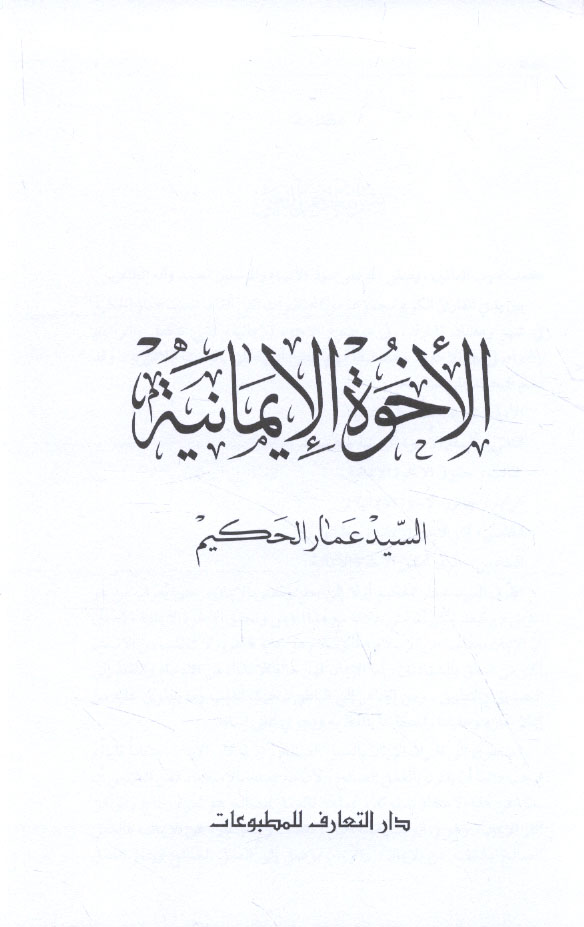 الأخوة الإيمانية
السيد عمار الحكيم
دار التعارف للمطبوعات